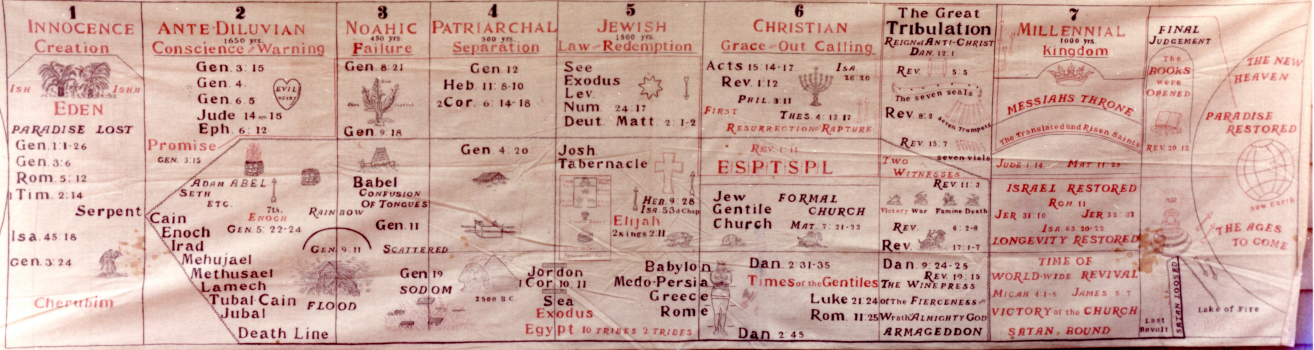 1
INNOCENCE
Creation
ISH
ISHA
EDEN
PARADISE LOST
Gen. 1:1-26
Gen. 3:6
Rom. 5:12
1 Tim. 2:14
Serpent
Isa. 45:18
Gen. 3:24
Cherubim
2
ANTE-DILUVIAN
1650 yrs.
Conscience and Warning
Gen. 3:15
Gen. 4.
Gen. 6.5
Jude 14-15
Eph. 6:12
EVIL
HEART
Promise
GEN. 3:15
ADAM ABEL
SETH
ETC.
7th.
ENOCH
GEN. 5:22-24
Cain
Enoch
Irad
Mehujael
Methusael
Lamech
Tubal-Cain
Jubal
Death Line
RAINBOW
GEN. 9.11
FLOOD
3
NOAHIC
450 yrs.
Failure
Gen. 8:21
Gen 9.18
Babel
CONFUSION
OF TONGUES
Gen. 11
SCATTERED
Gen 19
SODOM
4
PATRIARCHAL
500 yrs.
Separation
Gen 12
Heb. 11:8-10
2 Cor. 6:14-18
Gen 4:20
2500 B.C.
5
JEWISH
1500 yrs.
Law and Redemption
See
Exodus
Lev.
Num. 24:17
Deut. Matt 2:1-2
Josh
Tabernacle
HEB. 9:28
ISA. 53rd Chap
Elijah
2 Kings 2:11
Jordon
1 Cor. 10:11
Sea
Exodus
Egypt 10 TRIBES 2 TRIBES
Babylon
Medo-Persia
Greece
Rome
6
CHRISTIAN
Grace and Out Calling
Acts 15:14-17
ISA.
26:20
Rev. 1:12
PHIL. 3:11
FIRST
THES. 4:13-17
RESURRECTION RAPTURE
REV. 1:11
E S P T S P L
Jew
Gentile
Church
FORMAL
CHURCH
MAT. 7:21-23
Dan. 2:31-35
Times of the Gentiles
Luke 21:24
Rom. 11:25
Dan. 2:45
The Great
Tribulation
REIGN of ANTI-CHRIST
DAN. 12:1
REV. 5:5
The seven seals
Rev. 8:2
seven Trumpets
REV. 15:7
seven vials
TWO
WITNESSES
REV. 11:3
Victory War Famine Death
REV. 6:2-8
Rev. 17:1-7
DAN. 9:24-25
REV. 19:15
THE WINEPRESS
of the FIERCENESS and
Wrath ALMIGHTY GOD
ARMAGEDDON
7
MILLENNIAL
1000 yrs.
Kingdom
MESSIAHS THRONE
The Translated and Risen Saints
JUDE 1:14.
ISRAEL RESTORED
ROM. 11
JER 31:10
ISA 65:20-23
LONGEVITY RESTORED
TIME OF
WORLD-WIDE REVIVAL
MICAH 4:1-5
JAMES 5:7
VICTORY of the CHURCH
SATAN, BOUND
FINAL
JUDGEMENT
The
BOOKS
were
OPENED
REV. 20:12
SATAN LOOSED
Last
Revolt
THE NEW
HEAVEN
PARADISE
RESTORED
New Earth
THE AGES
TO COME
Lake of Fire